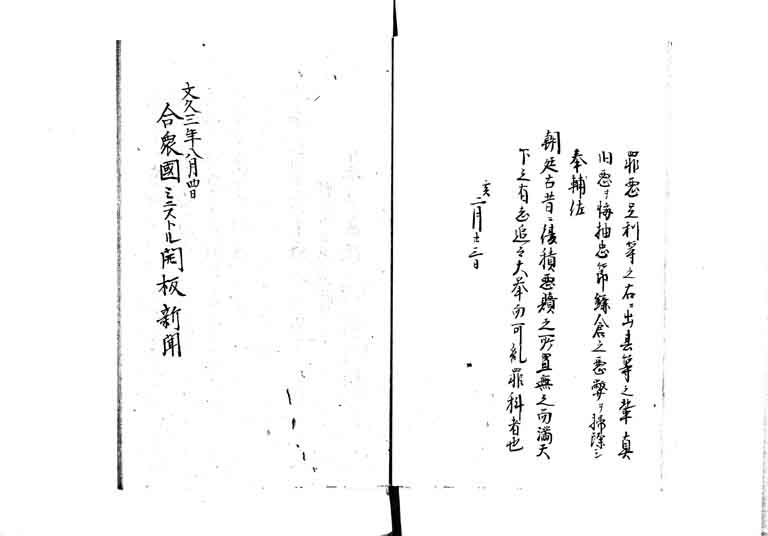 罪悪足利等之右ニ出真等之輩真
旧悪ヲ悔抽忠節鎌倉之悪弊ヲ掃除シ
奉輔佐
朝廷古昔ニ復積悪贖之所置無之而満天
下之有志追々大挙而可糺罪科者也
亥二月廿三日
文久三年八月四日
合衆國ミニストル開板新聞